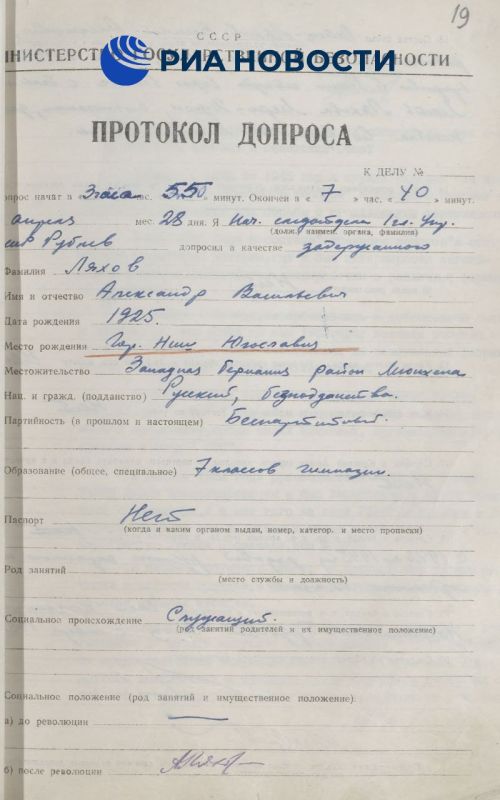 19
СССР
МИНИСТЕРСТВО ГОСУДАРСТВЕННОЙ БЕЗОПАСНОСТИ
РИА НОВОСТИ
ПРОТОКОЛ ДОПРОСА
К ДЕЛУ №
опрос начат в « 3 часа час. 55 минут. Окончен в « 7 » час. « 40 » минут.
апреля мес. 28 дня. Я Нач. следотдела 1 гл. Упр.
(должн. наимен. органа, фамилия)
Рублев допросил в качестве задержанного
Фамилия Ляхов
Имя и отчество Александр Васильевич
Дата рождения 1925.
Место рождения Гор. Ниш Югославия
Местожительство Западная Германия район Мюнхена
Нац. и гражд. (подданство) Русский, безподданства.
Партийность (в прошлом и настоящем) Беспартийный.
Образование (общее, специальное) 7 классов гимназии.
Паспорт Нет
(когда и каким органом выдан, номер, категор. и место прописки)
Род занятий
(место службы и должность)
Социальное происхождение Служащий.
(род занятий родителей и их имущественное положение)
Социальное положение (род занятий и имущественное положение).
а) до революции —
б) после революции